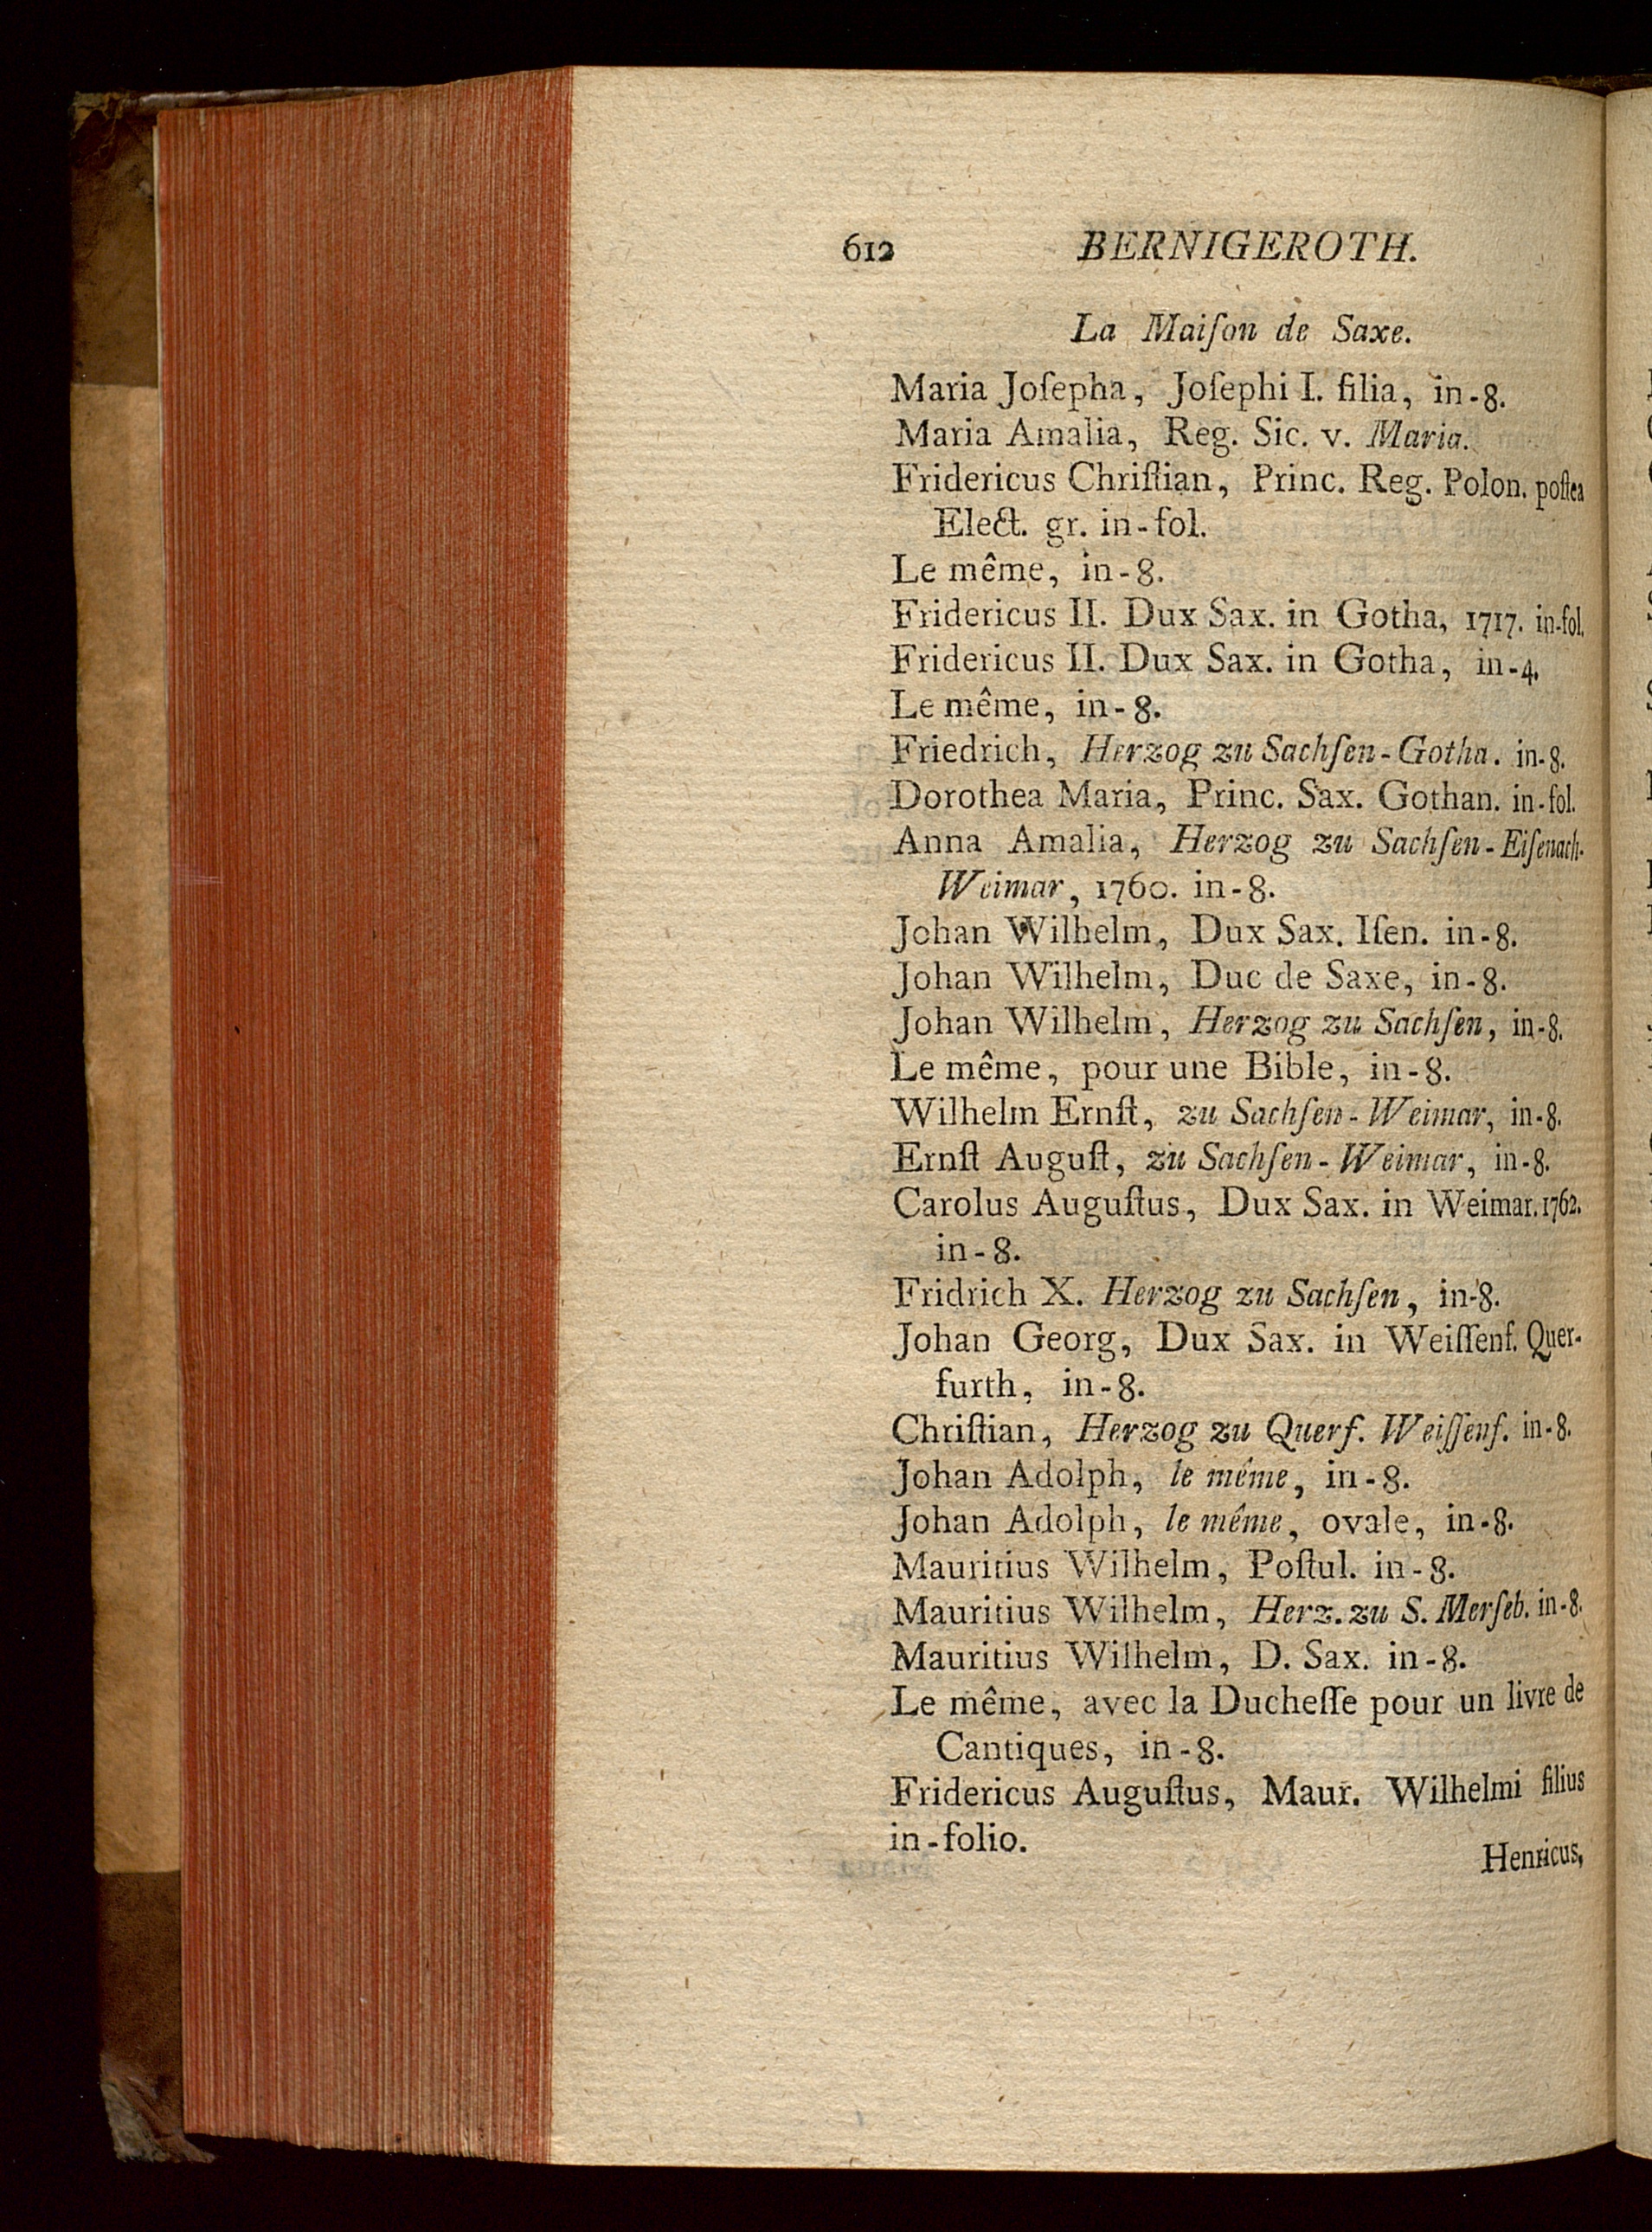 612 BERNIGEROTH.
La Maiſon de Saxe.
Maria Joſepha, Joſephi I. filia, in-8.
Maria Amalia, Reg. Sic. v. Maria.
Fridericus Chriſtian, Princ. Reg. Polon. poſtea
Elect. gr. in-fol.
Le même, in-8.
Fridericus II. Dux Sax. in Gotha, 1717. in-fol.
Fridericus II. Dux Sax. in Gotha, in-4.
Le même, in-8.
Friedrich, Herzog zu Sachſen-Gotha. in-8.
Dorothea Maria, Princ. Sax. Gothan. in-fol.
Anna Amalia, Herzog zu Sachſen-Eiſenach-
Weimar, 1760. in-8.
Johan Wilhelm, Dux Sax. Iſen. in-8.
Johan Wilhelm, Duc de Saxe, in-8.
Johan Wilhelm, Herzog zu Sachſen, in-8.
Le même, pour une Bible, in-8.
Wilhelm Ernſt, zu Sachſen-Weimar, in-8.
Ernſt Auguſt, zu Sachſen-Weimar, in-8.
Carolus Auguſtus, Dux Sax. in Weimar. 1762.
in-8.
Fridrich X. Herzog zu Sachſen, in-8.
Johan Georg, Dux Sax. in Weiſſenf. Quer-
furth, in-8.
Chriſtian, Herzog zu Querf. Weiſſenf. in-8.
Johan Adolph, le même, in-8.
Johan Adolph, le même, ovale, in-8.
Mauritius Wilhelm, Poſtul. in-8.
Mauritius Wilhelm, Herz. zu S. Merſeb. in-8.
Mauritius Wilhelm, D. Sax. in-8.
Le même, avec la Ducheſſe pour un livre de
Cantiques, in-8.
Fridericus Auguſtus, Maur. Wilhelmi filius
in-folio.
Henricus,